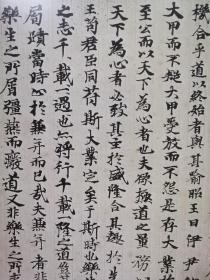 機合乎道以終始者與其喻昭王曰伊尹
大甲而不疑大甲受放而不怨是存大業
至公而以天下為心者也夫欲極道之量務
天下為心者必致其主於盛隆合其趣於
王苟君臣同符斯大業定矣于斯時也樂
之志千載一遇也亦將行千載一隆之道豈
局蹟當時止於兼并而已哉夫兼并者非
樂生之所屑彊燕而廢道又非樂生之所